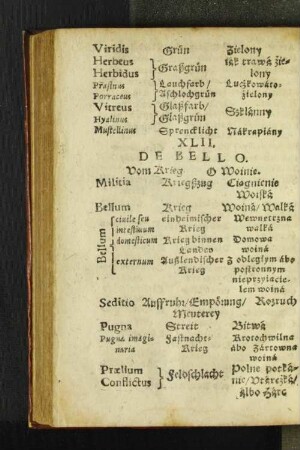 Viridis Grün Zielony
Herbeus Graßgrün iák trawá zie-
Herbidus lony
Prasinus Lauchfarb/ Luczkowáto-
Porraceus Aschlochgrün zielony
Vitreus Glaßfarb/ Szklánny
Hyalinus Glaßgrün
Mustellinus Sprencklicht Nákrapiány
XLII.
DE BELLO.
Vom Krieg O Woinie.
Militia Kriegßzug Ciągnienie
Woiská
Bellum Krieg Woiná/ Walká
Bellum civile seu einheimischer Wewnetrzna
intestinum Krieg walká
domesticum Krieg binnen Domowa
Landen woiná
externum Außlendischer Z obleglym ábo
Krieg postronnym
nieprzyiacie-
lem woiná
Seditio Auffruhr/ Empörung/ Rozruch
Meuterey
Pugna Streit Bitwá
Pugna imagi- Fastnacht- Krotochwilna
naria Krieg ábo Zártowna
woiná
Prælium Feldschlacht Polne potká-
Conflictus nie/ Utarczká/
álbo